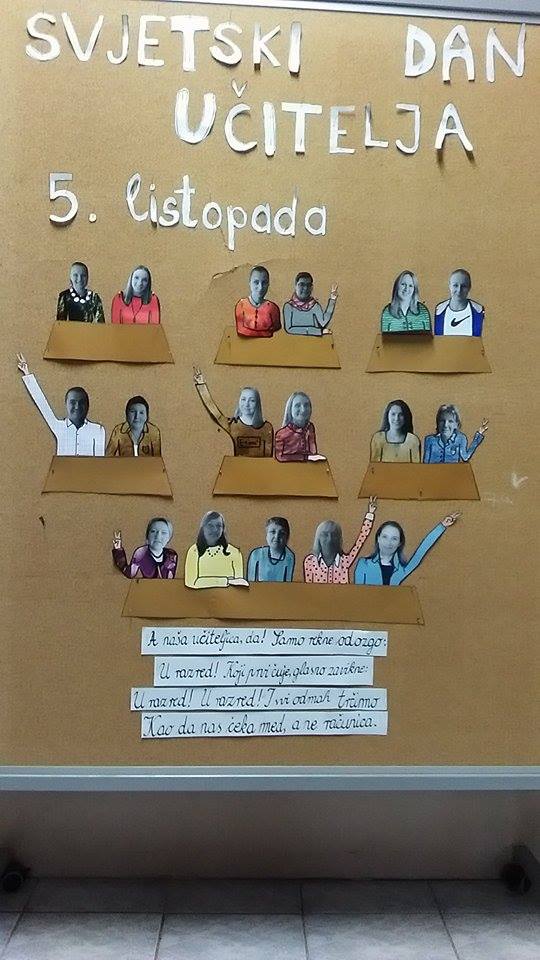 SVJETSKI DAN
UČITELJA
5. listopada
A naša učiteljica, da! Samo rekne odozgo:
U razred! Koji prvi čuje, glasno zavikne:
U razred! U razred! I svi odmah trčimo
Kao da nas čeka med, a ne računica.